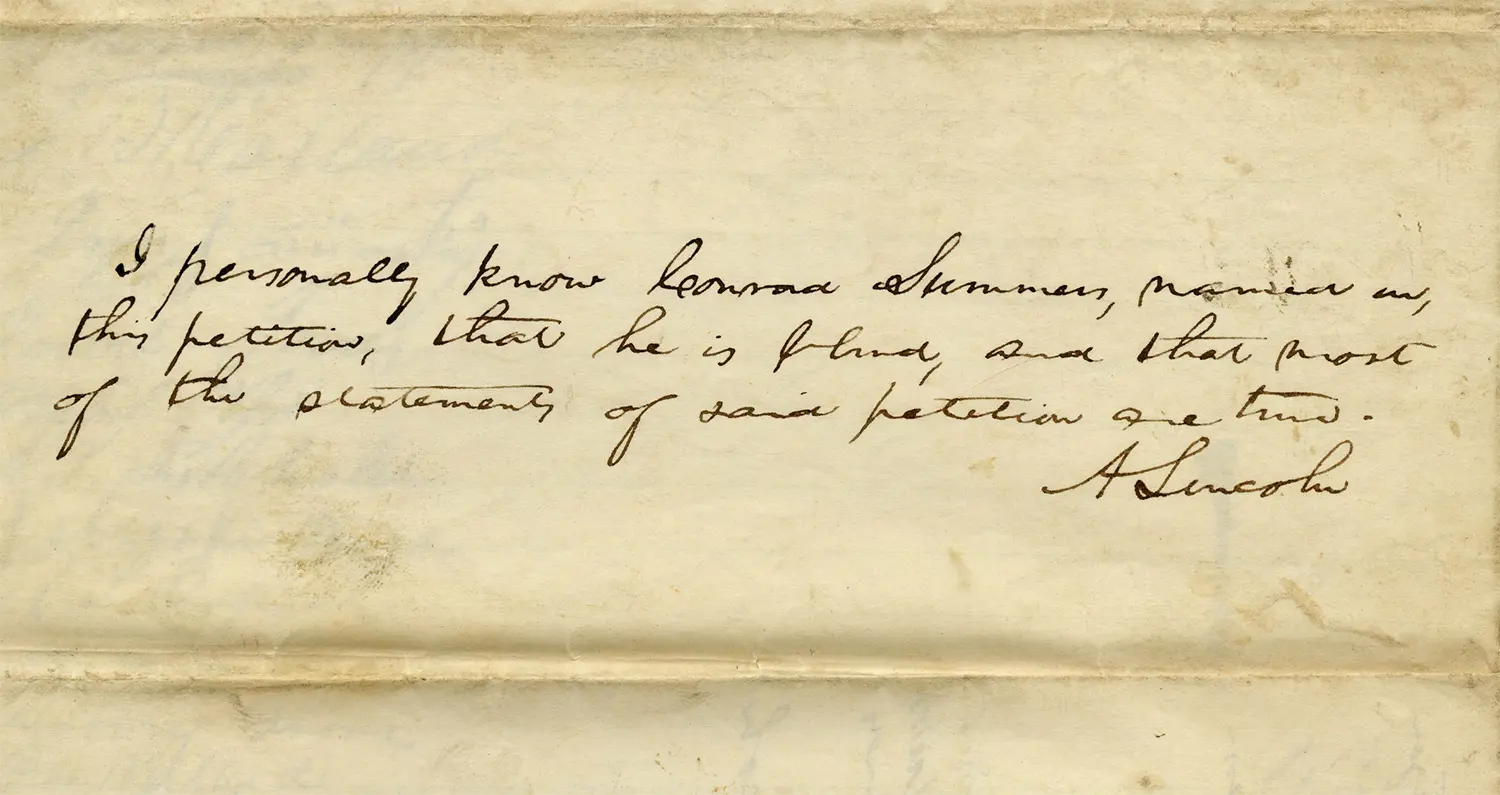 I personally know Conrad Summers, named in,
this petition, that he is blind, and that most
of the statements of said petition are true.
A Lincoln